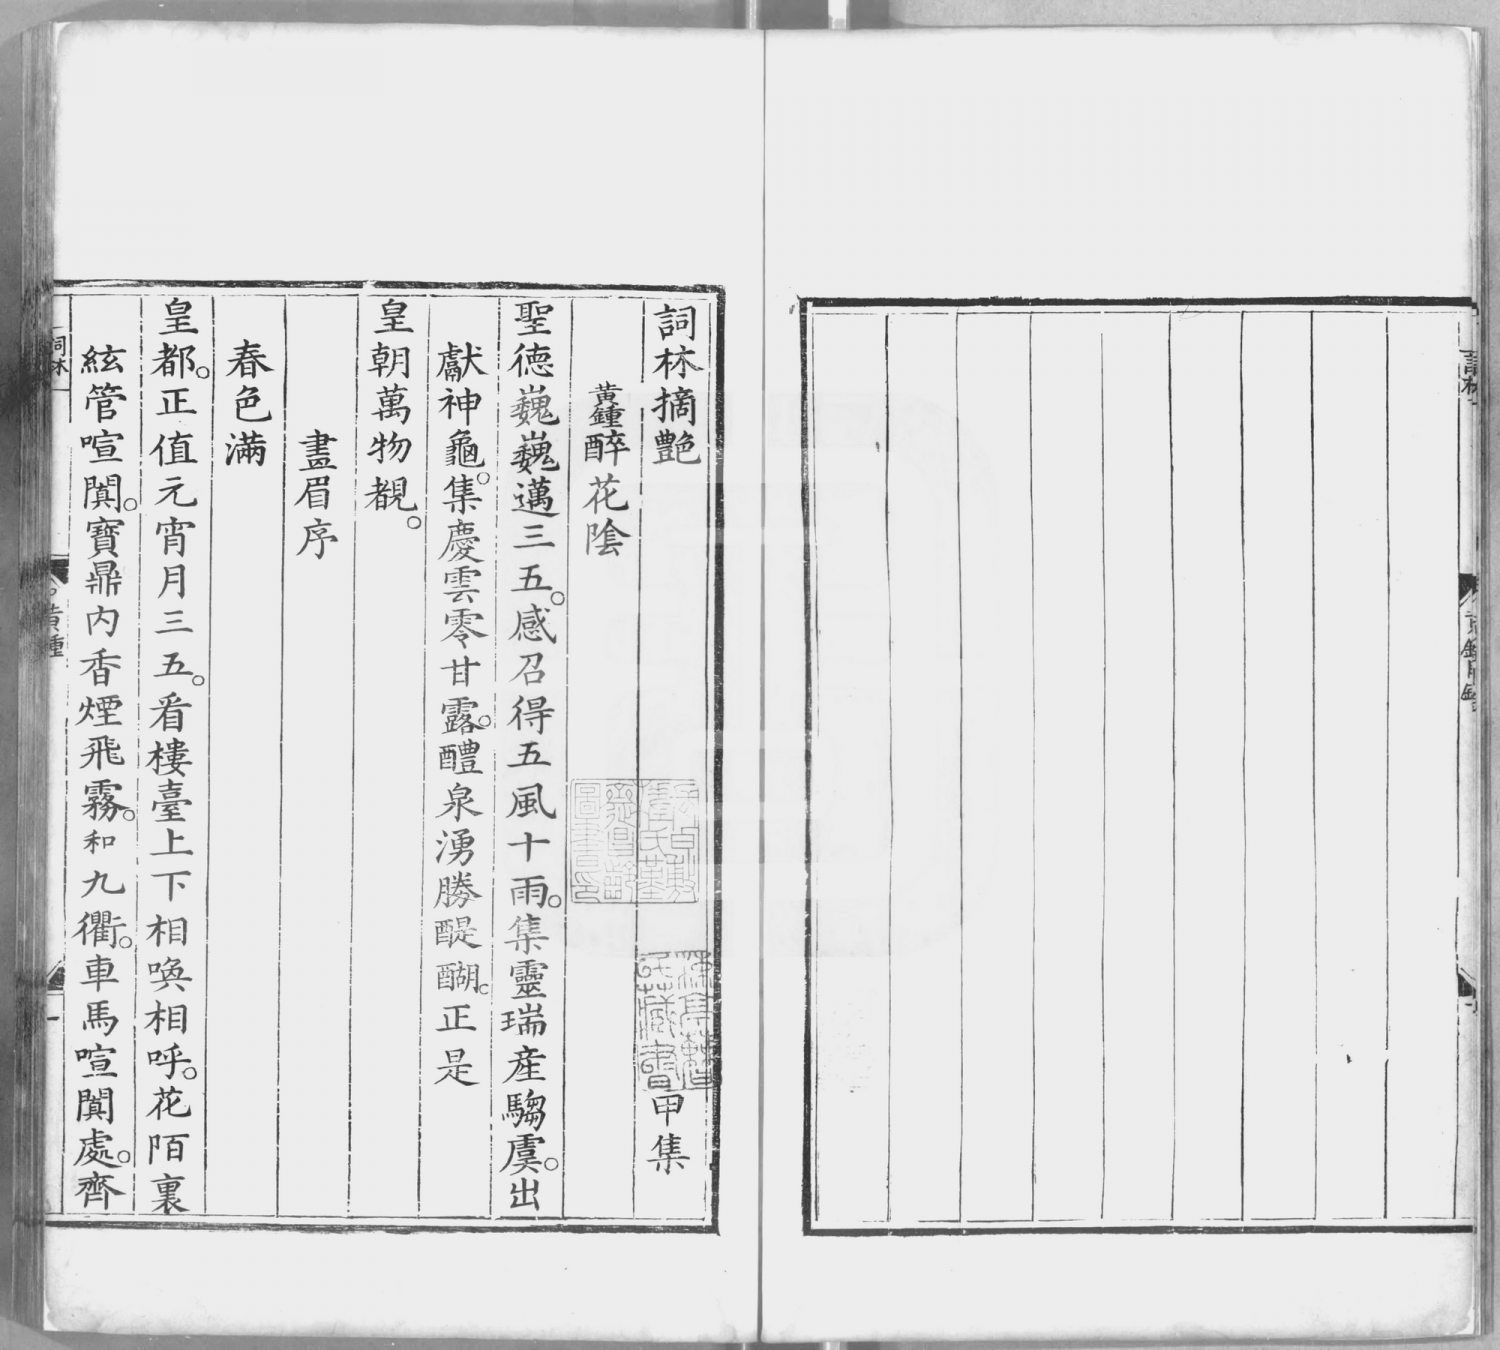 詞林摘艷 甲集
黃鍾醉花陰
聖德巍巍邁三五。感召得五風十雨。集靈瑞産騶虞。出
獻神龜。集慶雲零甘露。醴泉湧勝醍醐。正是
皇朝萬物覩。
畫眉序
春色滿
皇都。正值元宵月三五。看樓臺上下相喚相呼。花陌裏
絃管喧闐。寶鼎內香煙飛霧。和九衢。車馬喧闐處。齊
詞林
黃鍾
一